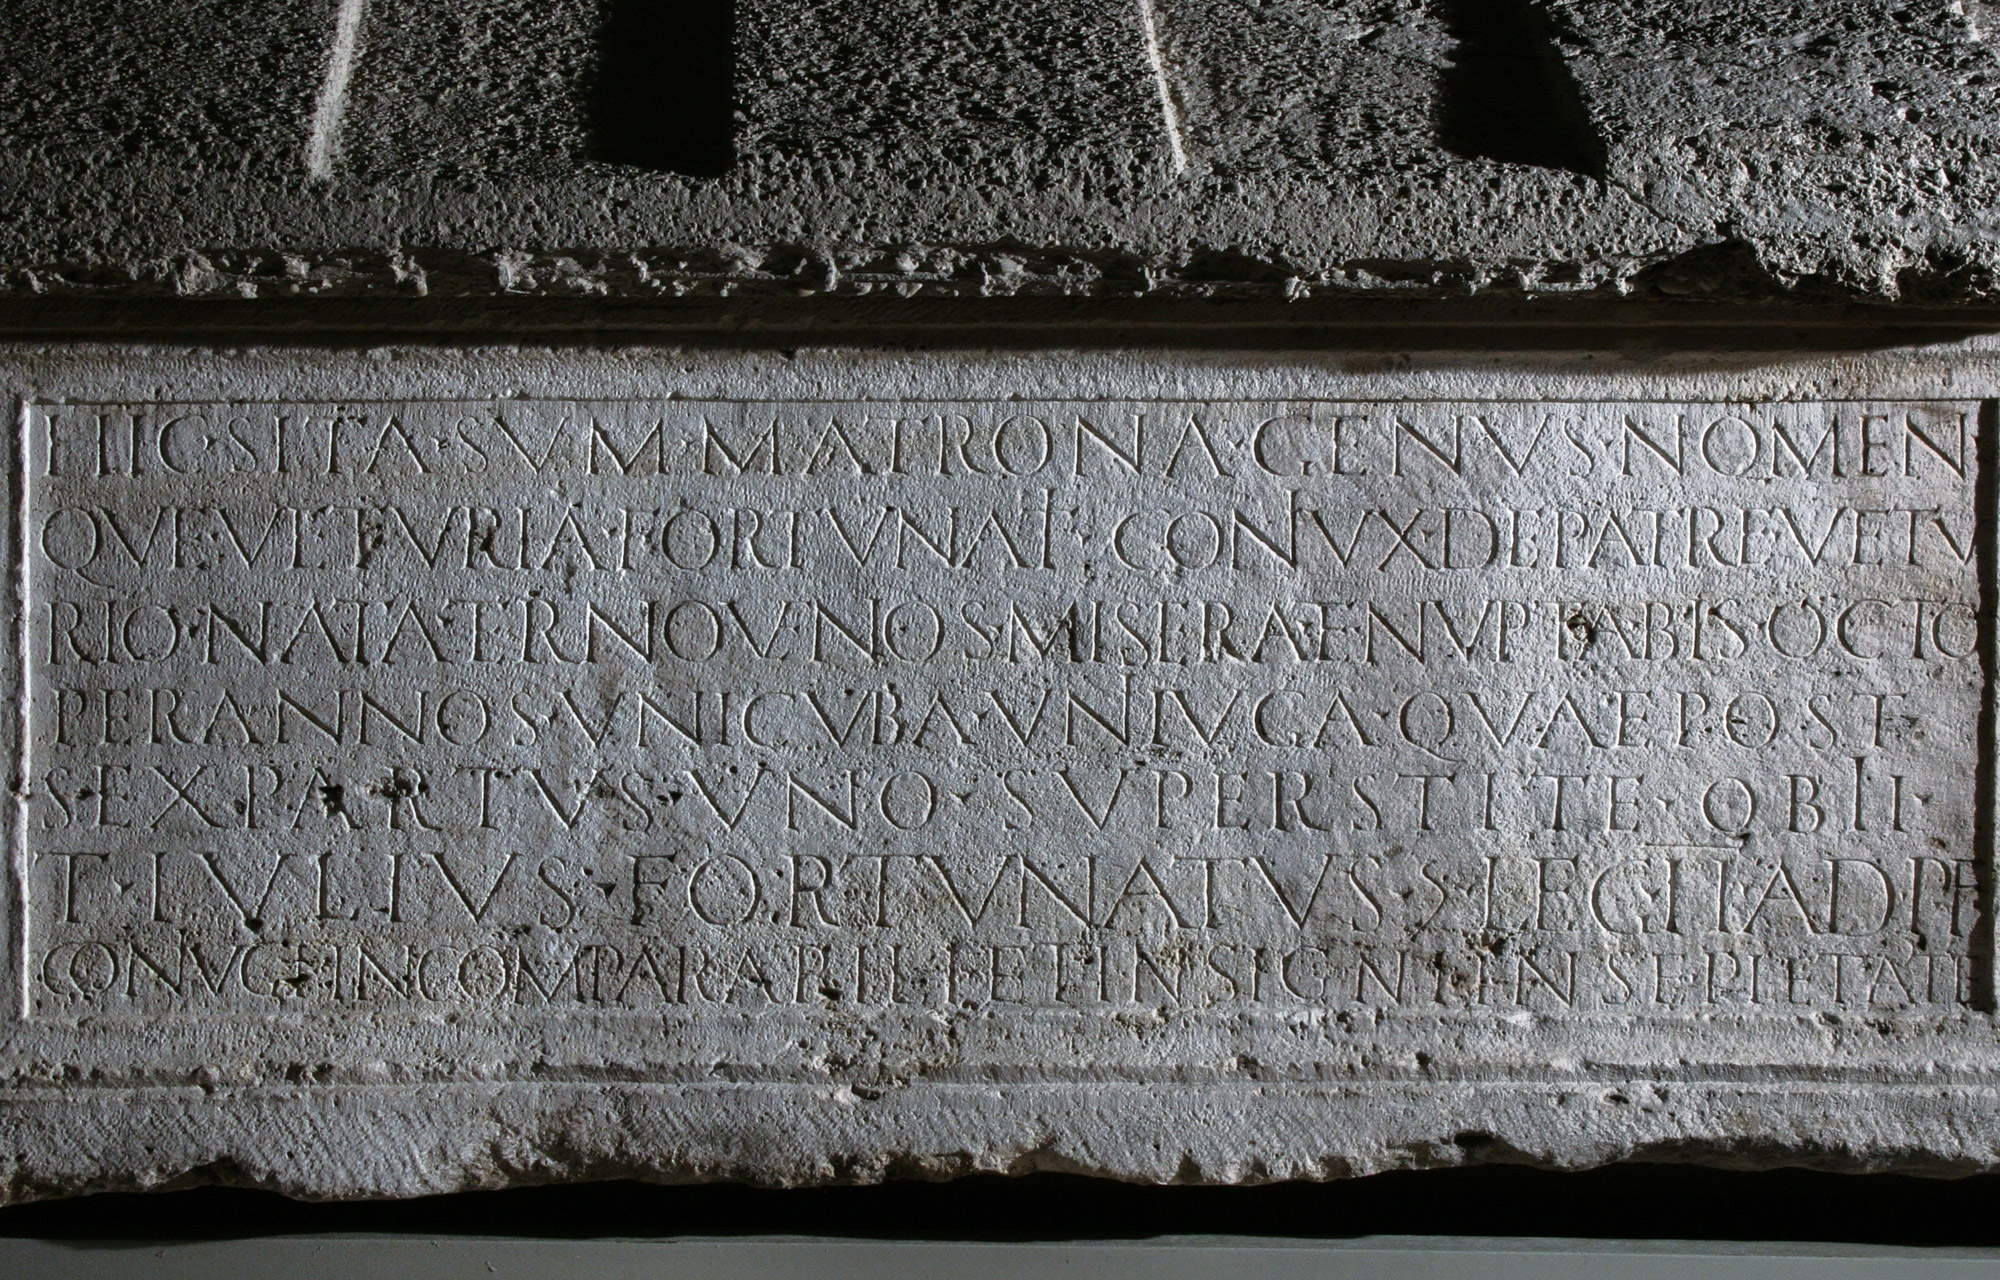 HIC·SITA·SVM·MATRONA·GENVS·NOMEN
QVE·VETVRIA·FORTVNATI·CONIVX·DE PATRE·VETV
RIO·NATA·TER NOVENOS·MISERA ET NVPTA BIS·OCTO
PER ANNOS·VNICVBA·VNIIVGA·QVAE POST
SEX PARTVS·VNO·SVPERSTITE·OBII·
T·IVLIVS·FORTVNATVS·LEG·II·AD P F
CONVGI INCOMPARABILI ET INSIGNI IN SE PIETATE